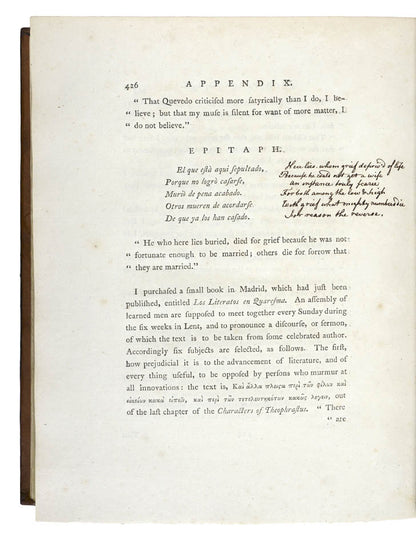 426 APPENDIX.
“ That Quevedo criticiſed more ſatyrically than I do, I be-
“ lieve; but that my muſe is ſilent for want of more matter, I
“ do not believe.”
EPITAPH.
El que eſtà aqui ſepultado,
Porque no logrò caſarſe,
Muriò de pena acabado,
Otros mueren de acordarſe
De que ya los han caſado.
Here lies whom grief depriv'd of life
Because he could not get a wife
An instance truly scarce
For both among the low & high
with grief what mighty numbers die
for reason the reverse.
“ He who here lies buried, died for grief becauſe he was not
“ fortunate enough to be married; others die for ſorrow that
“ they are married.”
I purchaſed a ſmall book in Madrid, which had juſt been
publiſhed, entitled Los Literatos en Quareſma. An aſſembly of
learned men are ſuppoſed to meet together every Sunday during
the ſix weeks in Lent, and to pronounce a diſcourſe, or ſermon,
of which the text is to be taken from ſome celebrated author.
Accordingly ſix ſubjects are ſelected, as follows. The firſt,
how prejudicial it is to the advancement of literature, and of
every thing uſeful, to be oppoſed by perſons who murmur at
all innovations: the text is, Καὶ ἄλλα πλεῖστα περὶ τῶν φίλων καὶ
οἰκείων κακὰ εἰπεῖν, καὶ περὶ τῶν τετελευτηκότων κακῶς λέγειν, out
of the laſt chapter of the Characters of Theophraſtus. “ There
“ are